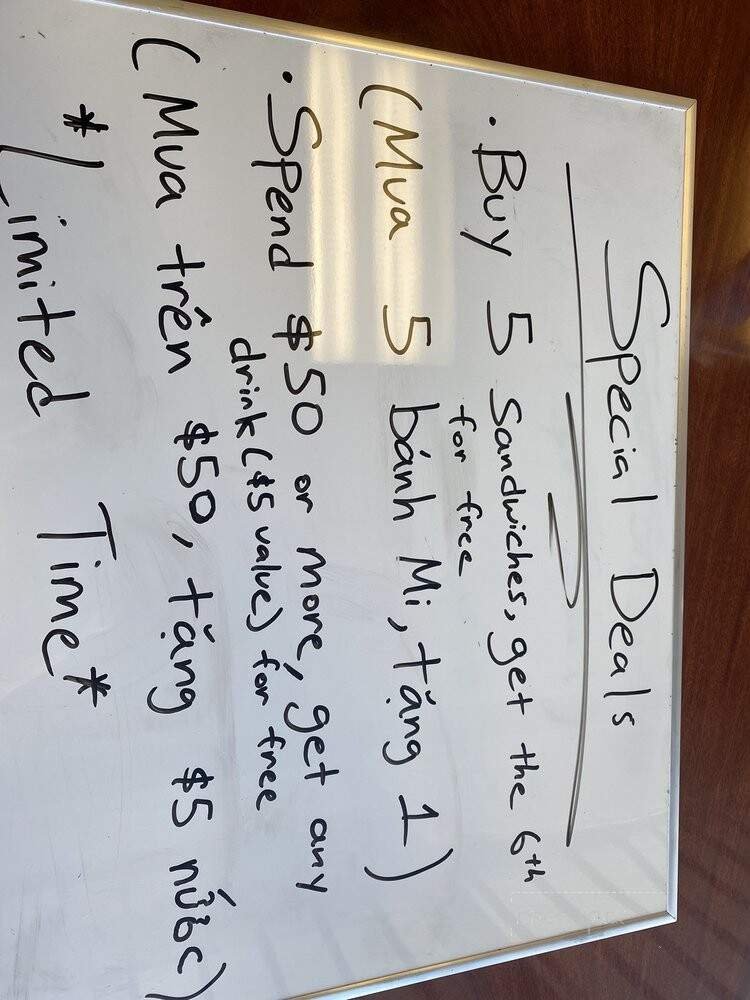 Special Deals
. Buy 5 Sandwiches, get the 6th
for free
(Mua 5 bánh Mi, tặng 1)
. Spend $50 or more, get any
drink ($5 value) for free
(Mua trên $50, tặng $5 nước)
*Limited Time*